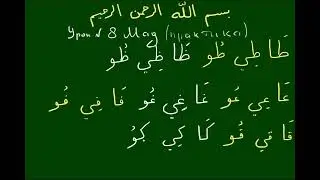 بسم الله الرحمن الرحيم
Урок № 8 Мад (практика)
طَا طِي طُو ظَا ظِي ظُو
عَا عِي عُو غَا غِي غُو فَا فِي فُو
قَا قِي قُو كَا كِي كُو